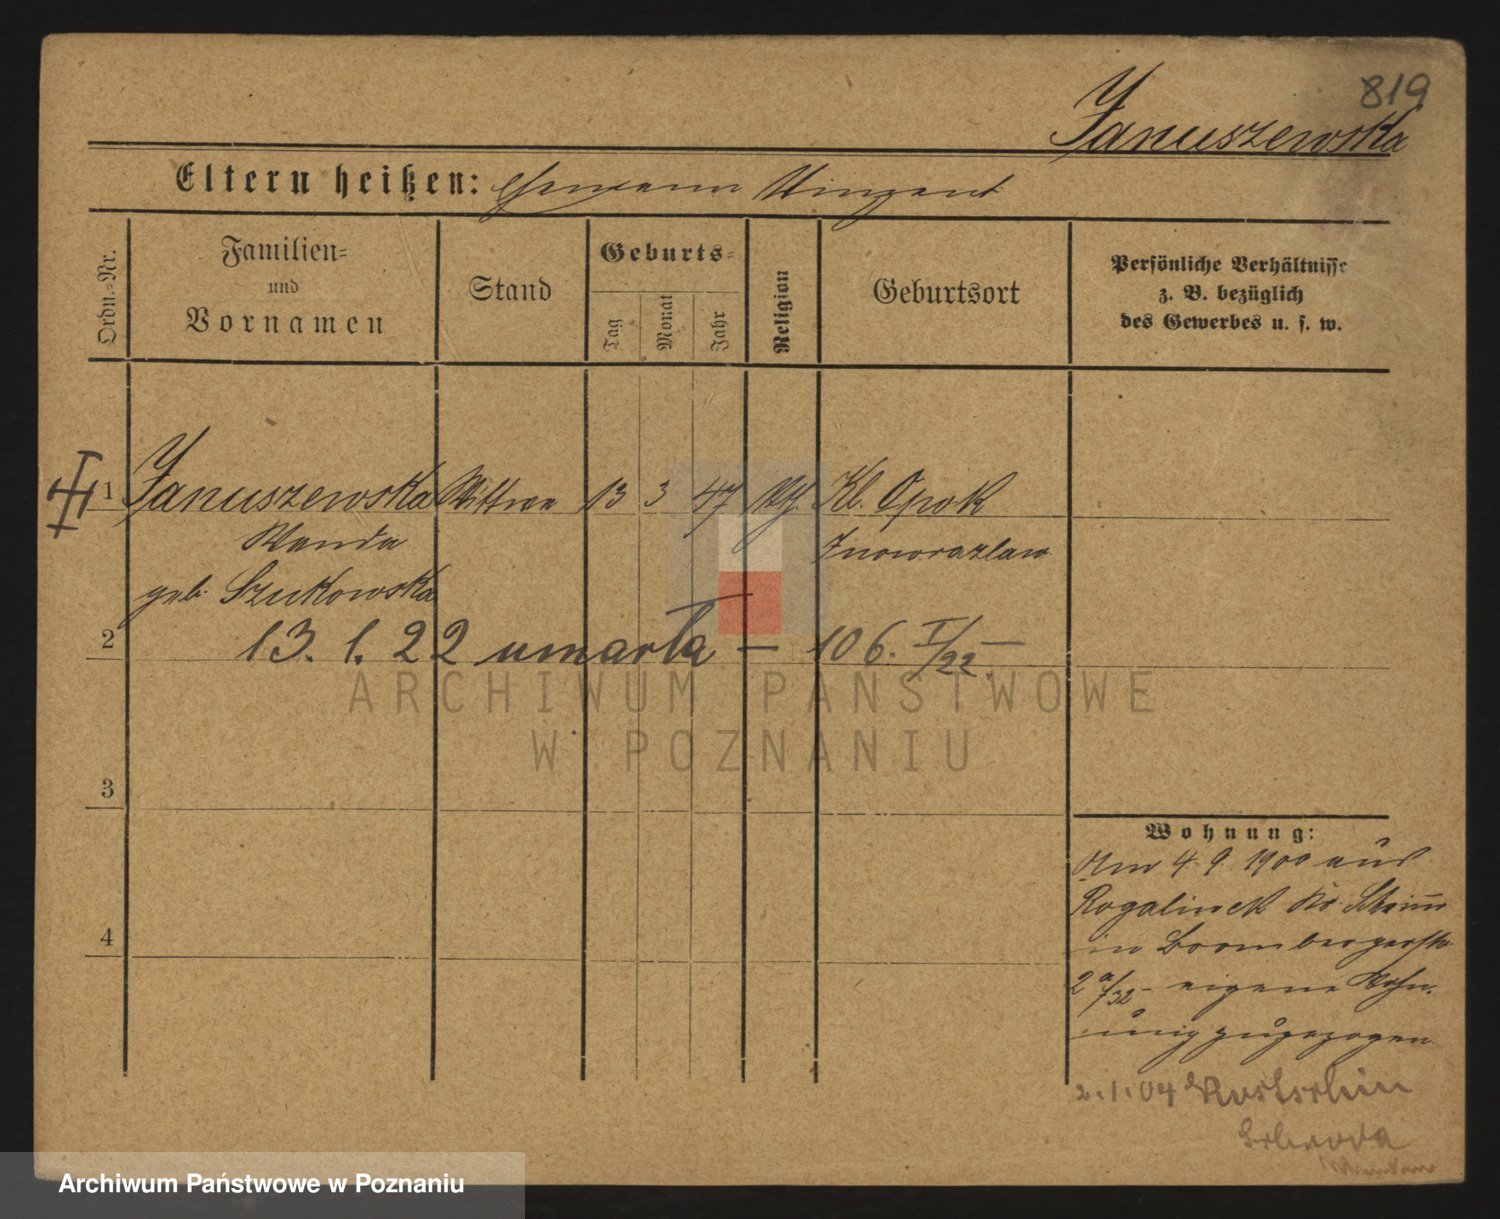 819
Januszewska
Eltern heißen: Vinzent
Ordn.-Nr.
Familien-
und
Vornamen
Stand
Geburts-
Tag
Monat
Jahr
Religion
Geburtsort
Persönliche Verhältnisse
z. B. bezüglich
des Gewerbes u. s. w.
1 Januszewska Wittwe 13 3 47 Kl. Opok
Wanda Inowrazlaw
geb. Szukowska
2 13. 1. 22 umarła – 106. I/22. –
ARCHIWUM PAŃSTWOWE
W POZNANIU
3
Wohnung:
Am 4. 9. 1900 aus
Rogalinek Kr. Schrimm
in
4
2 a/732 – eigene Wohn-
ung zugezogen
2.1.04
Schroda
Archiwum Państwowe w Poznaniu